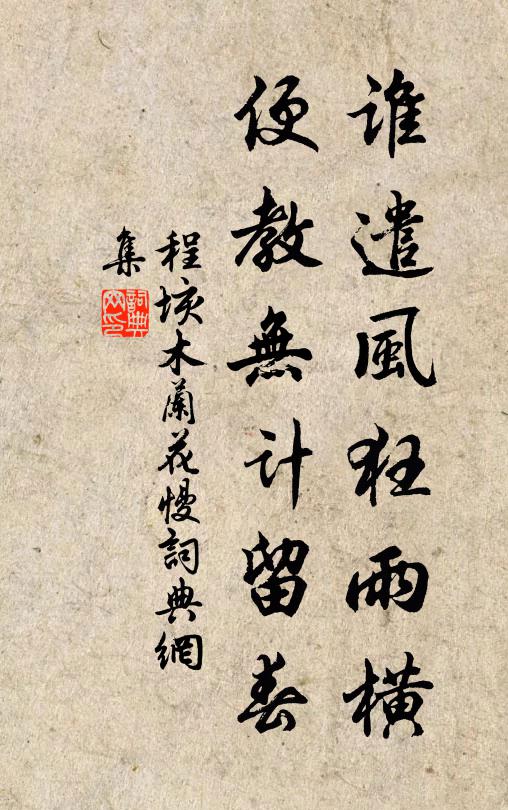 誰遣風狂雨橫
便教無計留春
程垓木蘭花慢詞典網
集
詞典
網印